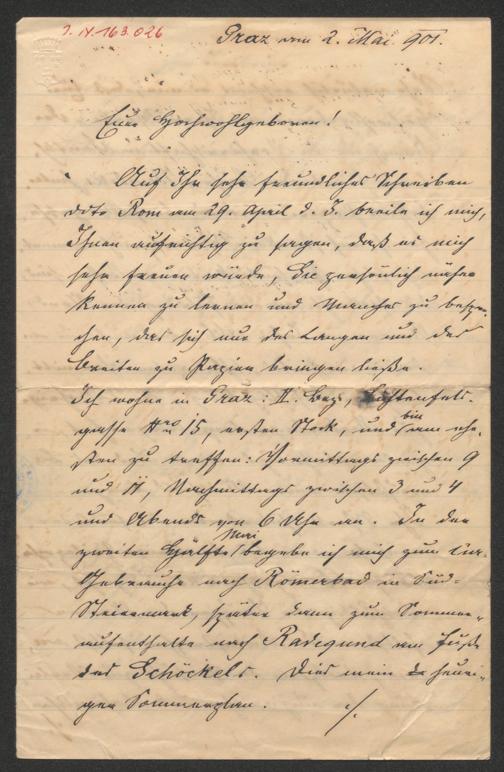 I. N. 163.026
Graz am 2. Mai 901.
Euer Hochwohlgeboren!
Auf Ihr sehr freundliches Schreiben
ddto Rom am 29. April d. J. beeile ich mich,
Ihnen aufrichtig zu sagen, daß es mich
sehr freuen würde, Sie persönlich näher
kennen zu lernen und Manches zu bespre-
chen, das sich nur des Langen und des
Breiten zu Papier bringen ließe.
Ich wohne in Graz: II. Bez., Lichtenfels-
gasse Nro 15, ersten Stock, und bin am ehe-
sten zu treffen: Vormittags zwischen 9
und 11, Nachmittags zwischen 3 und 4
und Abends von 6 Uhr an. In der
zweiten Hälfte Mai begebe ich mich zum Cur-
Gebrauche nach Römerbad in Süd-
Steiermark, später dann zum Sommer-
aufenthalte nach Radegund am Fuße
des Schöckels. Dies mein heuri-
ger Sommerplan. ./.